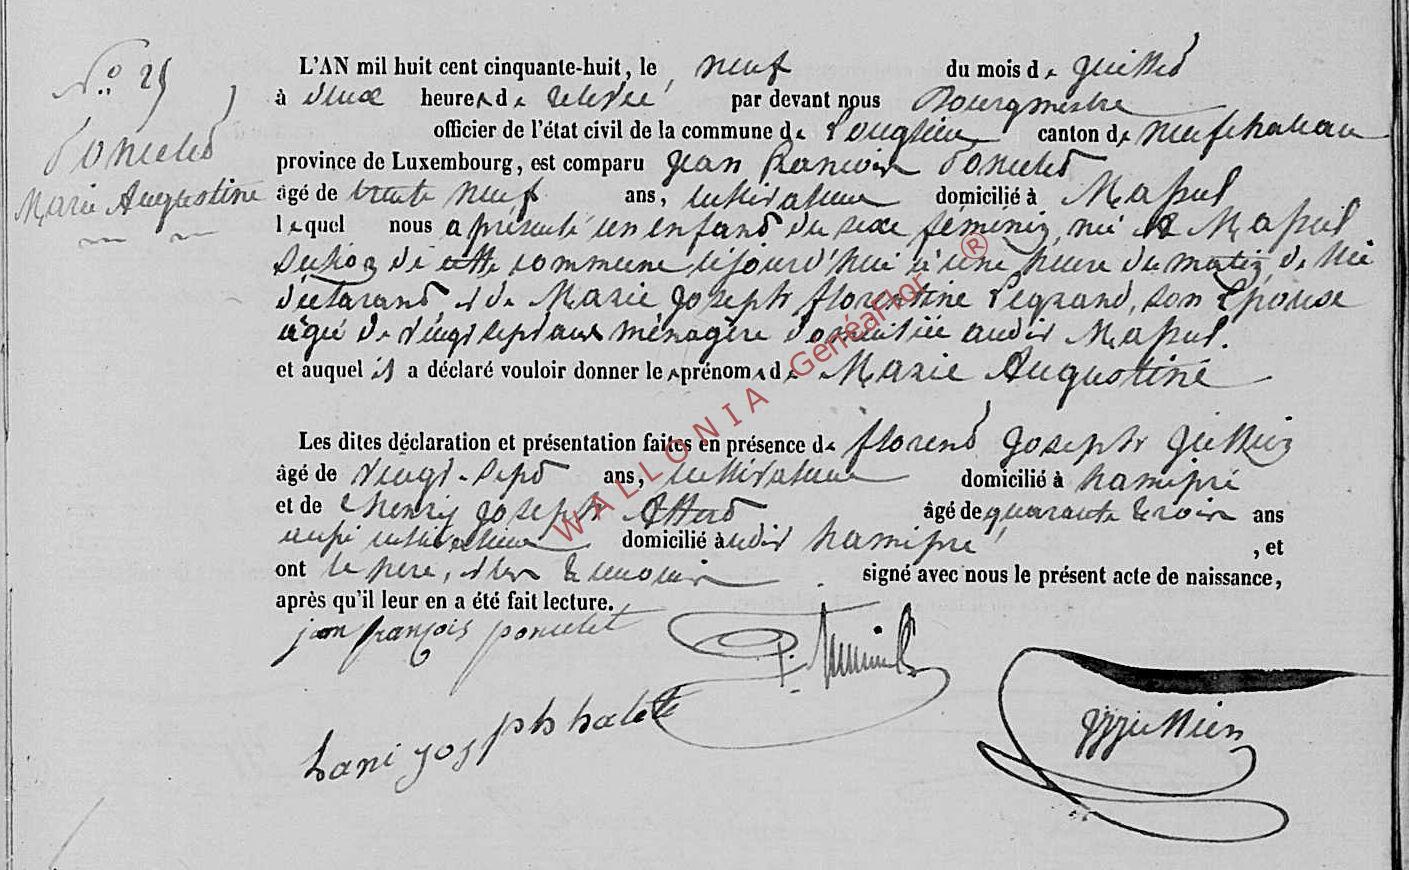 N.° 25
Poncelet
Marie Augustine
L'AN mil huit cent cinquante-huit, le neuf du mois de juillet
à deux heures de relevée par devant nous Bourgmestre
officier de l'état civil de la commune de Longlier canton de neufchateau
province de Luxembourg, est comparu jean francois Poncelet
âgé de trente neuf ans, cultivateur domicilié à Massul
lequel nous a présenté un enfant du sexe féminin, né à Massul
section de cette commune cejourd'hui à une heure du matin, de lui
déclarant et de Marie joseph florentine Legrand, son Epouse
agée de vingt sept ans ménagère domiciliée audit Massul.
et auquel il a déclaré vouloir donner les prénoms de Marie Augustine
Les dites déclaration et présentation faites en présence de florent joseph jullien
âgé de vingt-sept ans, cultivateur domicilié à hamipré
et de henry joseph âgé de quarante trois ans
aussi cultivateur domicilié audit hamipré , et
ont le père, et les témoins signé avec nous le présent acte de naissance,
après qu'il leur en a été fait lecture.
jean françois poncelet
hanri joseph
jullien
WALLONIA GenéaFlor ®